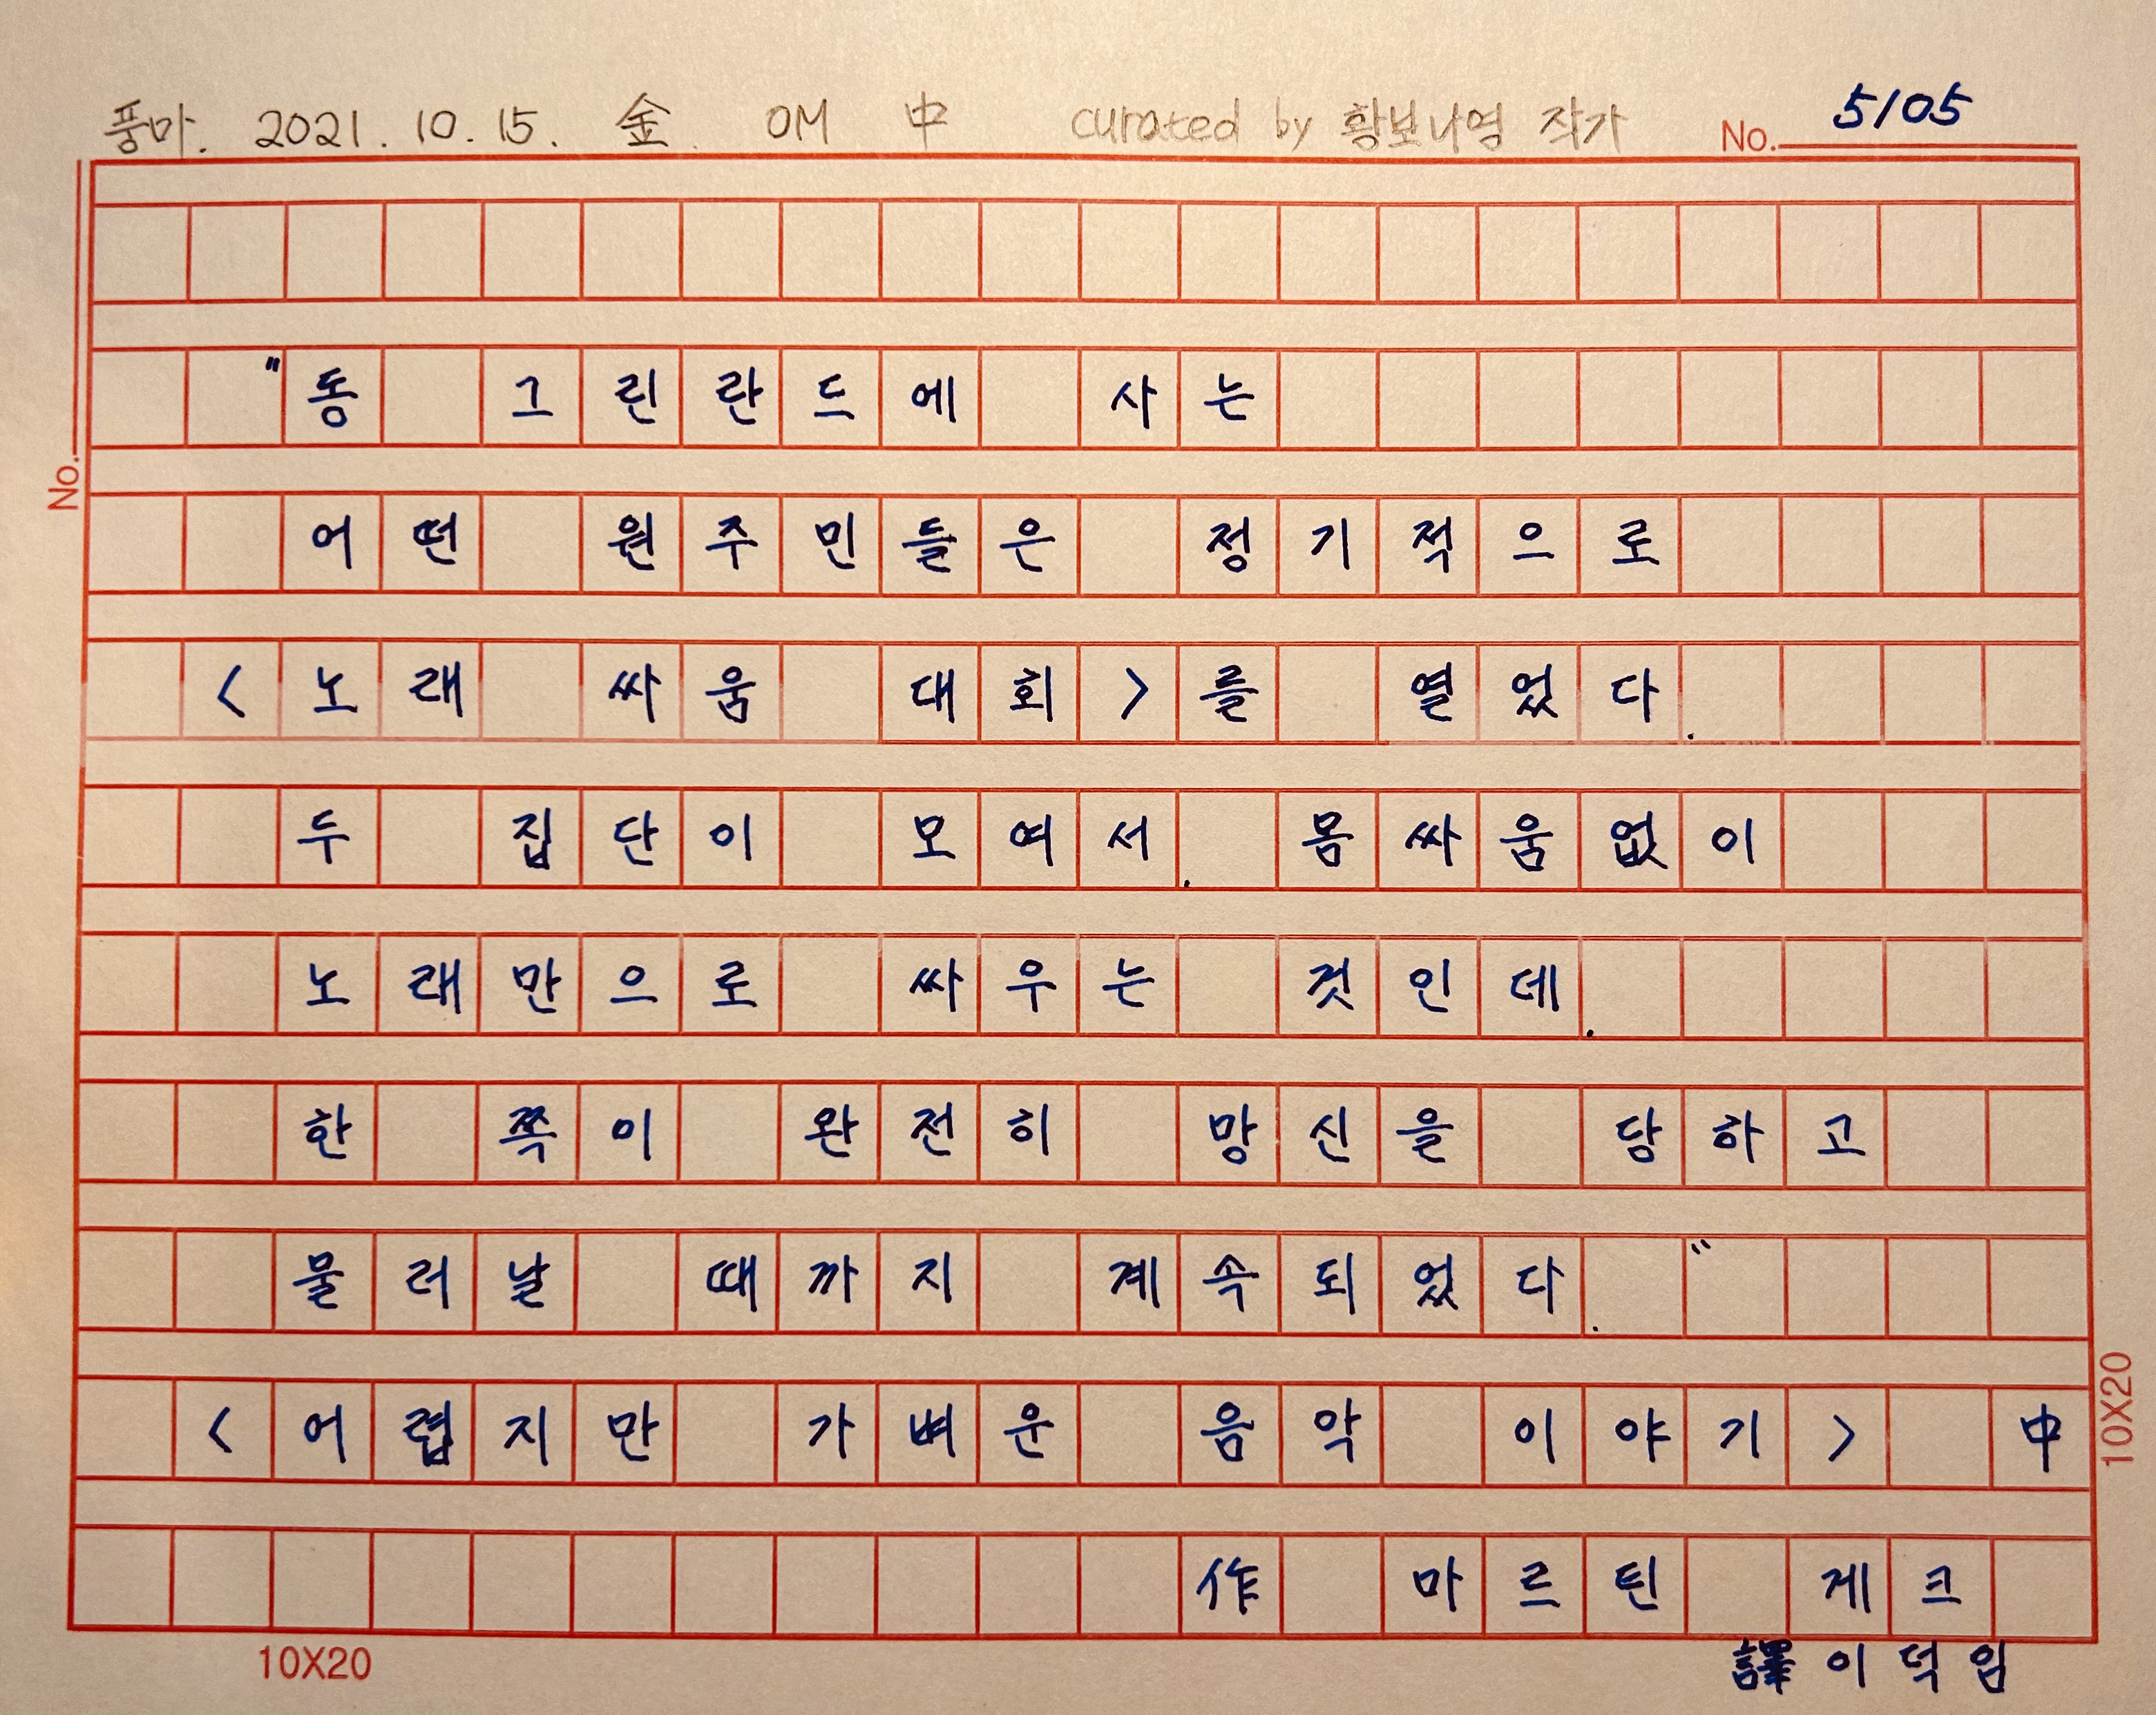 풍마. 2021. 10. 15. 金. OM 中 curated by 황보나영 작가 No. 5105
No.
"동 그린란드에 사는
어떤 원주민들은 정기적으로
<노래 싸움 대회>를 열었다.
두 집단이 모여서. 몸싸움없이
노래만으로 싸우는 것인데.
한 쪽이 완전히 망신을 당하고
물러날 때까지 계속되었다. "
<어렵지만 가벼운 음악 이야기> 中
作 마르틴 게크
譯 이덕임
10X20
10X20